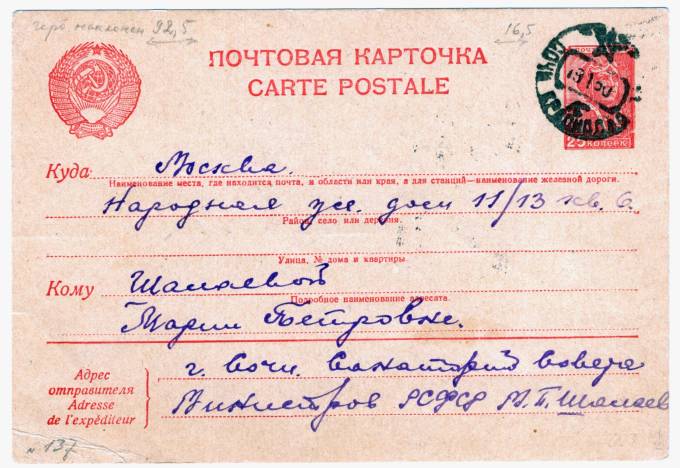 герб наклонен 92,5
16,5
ПОЧТОВАЯ КАРТОЧКА
CARTE POSTALE
ПОЧТА
СОЧИ
19 1 50
25 КОПЕЕК
Куда Москва.
Наименование места, где находится почта, и области или края, а для станций—наименование железной дороги.
Народная ул. дом 11/13 кв. 6.
Район, село или деревня.
Улица, № дома и квартиры
Кому Шалаевой
Подробное наименование адресата.
Марии Петровне.
Адрес
отправителя
Adresse
de l'expéditeur
г. Сочи. Санаторий Совета
Министров РСФСР М.П. Шалаев
N 137